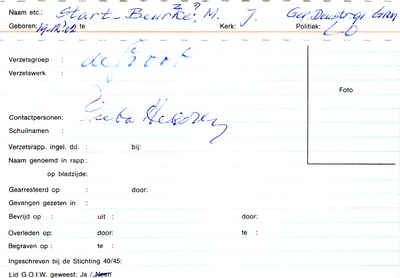 Naam etc.: Start-Beurke, M. J.
Geboren: 19.12.'02 te Kerk: Politiek:
Verzetsgroep : de Groot
Verzetswerk :
Foto
Contactpersonen:
Schuilnaam :
Verzetsrapp. ingel. dd. : bij:
Naam genoemd in rapp.:
op bladzijde:
Gearresteerd op : door:
Gevangen gezeten in :
Bevrijd op : uit : door:
Overleden op: door: te :
Begraven op : te :
Ingeschreven bij de Stichting 40/45:
Lid G.O.I.W. geweest: Ja / Neen